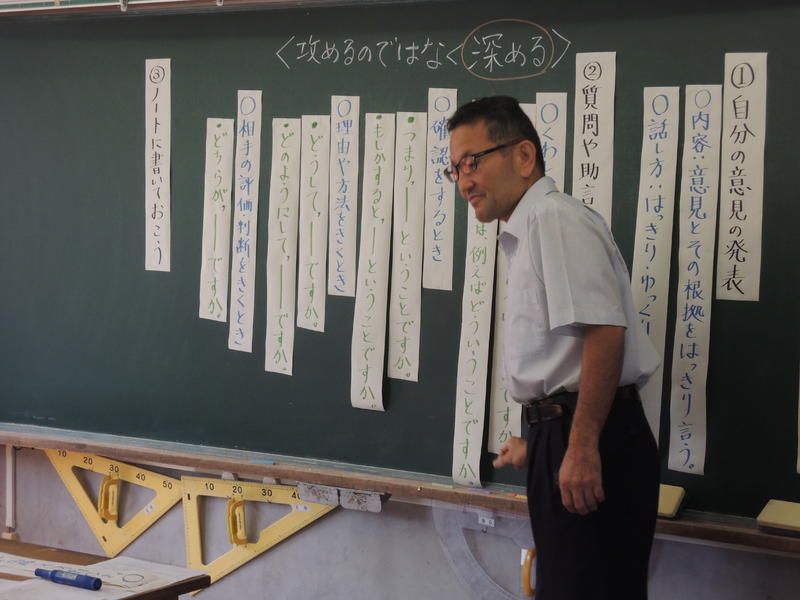 〈攻めるのではなく深める〉
① 自分の意見の発表
○内容:意見とその根拠をはっきり言う。
○話し方:はっきり・ゆっくり
② 質問や助言
○くわ
は、例えばどういうことですか。
ですか
○確認をするとき
・つまり、―ということですか。
・もしかすると、―ということですか。
○理由や方法をきくとき
・どうして、―ですか。
・どのようにして、―ですか。
○相手の評価・判断をきくとき
・どちらが、―ですか。
③ ノートに書いておこう
10 20 30 40 50
10 20 30 40